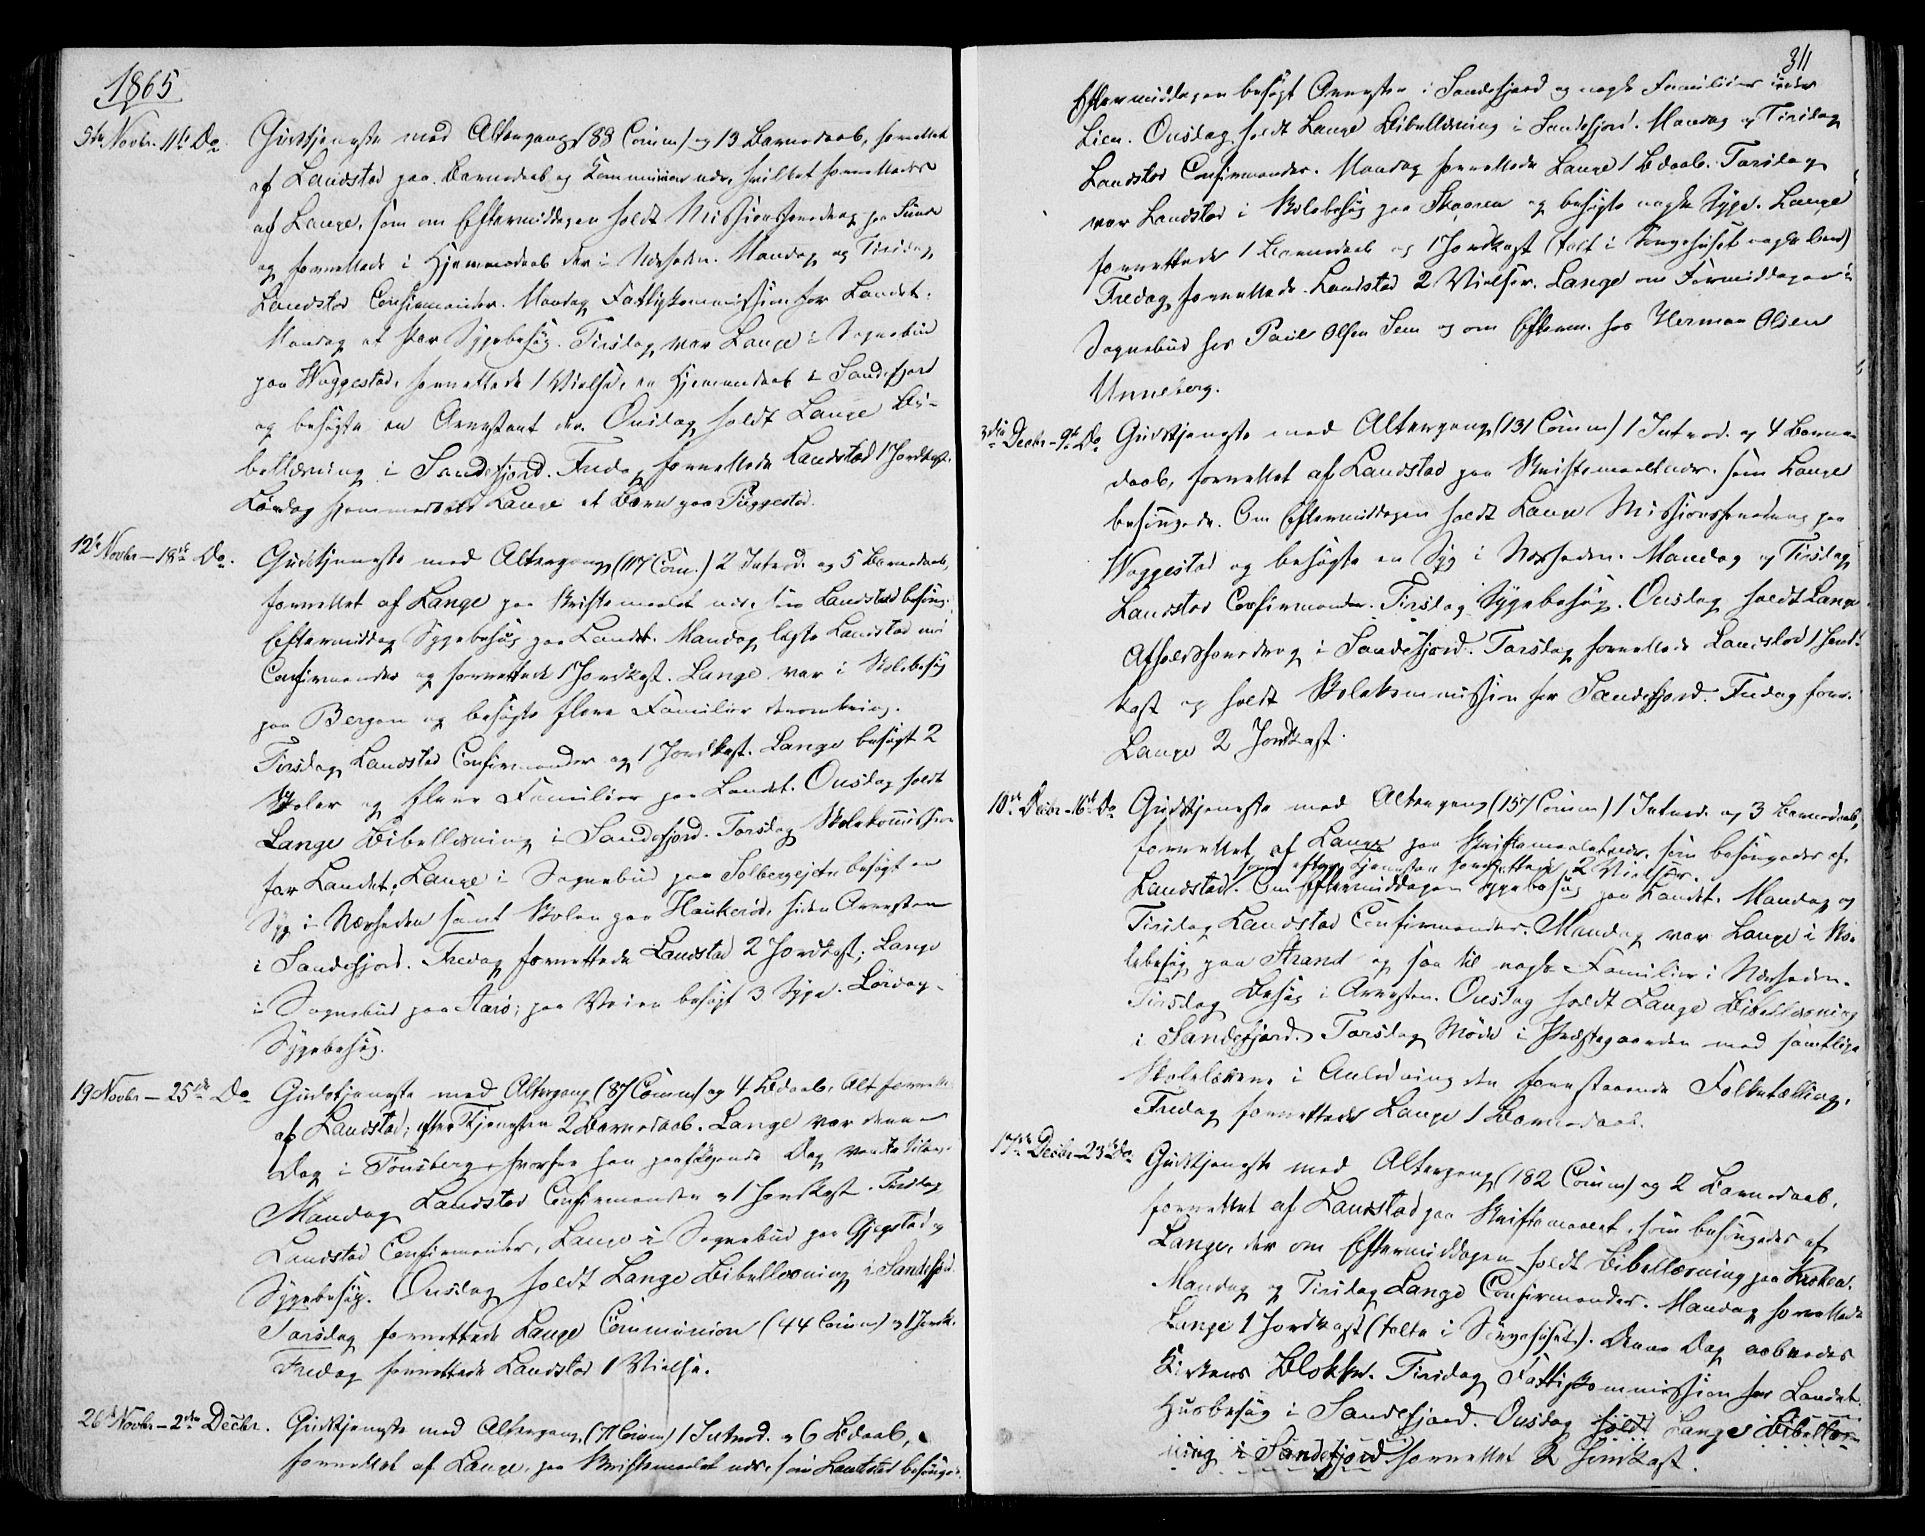 1865
5te Novbr. 11te Do. Gudstjeneste med Altergang (88 Comm) og 13 Barnedaab, forrettet
af Landstad paa Barnedaab og Kommunion nær, hvilket forrettedes
af Lange, som om Eftermiddagen holdt Missionsforedrag paa
og forrettede i Hjemmedaab der i Nærheden. Mandag og Tirsdag
Landstad Confirmander. Mandag Fattigkommission for Landet.
Mandag et Par Sygebesøg. Tirsdag var Lange i Sognebud
paa Waggestad, forrettede 1 Vielse, en Hjemmedaab i Sandefjord
og besøgte en Arrestant der. Onsdag holdt Lange Bi-
bellæsning i Sandefjord. Fredag forrettede Landstad 1 Jordkast.
Lørdag hjemmedøbte Lange et Barn paa
12te Novbr. – 18de Do. Gudstjeneste med Altergang (117 Com.) 2 Introd. og 5 Barnedaab,
forrettet af Lange paa Skriftemaalet nær, som Landstad besørg.
Eftermiddag Sygebesøg paa Landet. Mandag læste Landstad med
Confirmander og forrettede 1 Jordkast. Lange var i Skolebesøg
paa Bergan og besøgte flere Familier deromkring.
Tirsdag Landstad Confirmander og 1 Jordkast. Lange besøgt 2
Skoler og flere Familier paa Landet. Onsdag holdt
Lange Bibellæsning i Sandefjord. Torsdag Skolekommission
for Landet; Lange i Sognebud paa Solbergejete besøgt en
Syg i Nærheden samt Skolen paa Haukerød, siden Arresten
i Sandefjord. Fredag forrettede Landstad 2 Jordkast; Lange
i Sognebud paa Aarø; paa Veien besøgt 3 Syge. Lørdag
Sygebesøg.
19 Novbr – 25de Do Gudstjeneste med Altergang (87 Comm) og 4 Bdaab, Alt forrettet
af Landstad; efter Tjenesten 2 Barnedaab. Lange var denne
Dag i Tønsberg, hvorfra han paafølgende Dag vendte tilbage.
Mandag Landstad Confirmander og 1 Jordkast. Tirsdag
Landstad Confirmander, Lange i Sognebud paa Gjegstad og
Sygebesøg. Onsdag holdt Lange Bibellæsning i Sandefjord.
Torsdag forrettede Lange Communion (44 Comm) og 1 Jordk.
Fredag forrettede Landstad 1 Vielse.
26de Novbr. – 2den Decbr. Gudstjeneste med Altergang (71 Comm) 1 Introd. og 6 Bdaab,
forrettet af Lange, paa Skriftemaalet nær, som Landstad besørgede.
311
Eftermiddagen besøgt Arresten i Sandefjord og nogle Familier under
Lien. Onsdag holdt Lange Bibellæsning i Sandefjord. Mandag og Tirsdag
Landstad Confirmander. Mandag forrettede Lange 1 Bdaab. Torsdag
var Landstad i Skolebesøg paa Skaaren og besøgte nogle Syge. Lange
forrettede 1 Barnedaab og 1 Jordkast (talt i Sørgehuset nogle Ord)
Fredag forrettede Landstad 2 Vielser. Lange om Formiddagen i
Sognebud hos Paul Olsen Sem og om Efterm. hos Herman Olsen
Unneberg.
3die Decbr – 9de Do Gudstjeneste med Altergang (131 Comm) 1 Introd. og 4 Barne-
daab, forrettet af Landstad paa Skriftemaalet nær. som Lange
besørgede. Om Eftermiddagen holdt Lange Missionsforedrag paa
Waggestad og besøgte en Syg i Nærheden. Mandag og Tirsdag
Landstad Confirmander. Tirsdag Sygebesøg. Onsdag holdt Lange
Afholdsforedrag i Sandefjord. Torsdag forrettede Landstad 1 Jord-
kast og holdt Skolekommission for Sandefjord. Fredag forr.
Lange 2 Jordkast.
10de Decbr – 16de Do Gudstjeneste med Altergang (157 Comm) 1 Introd. og 3 Barnedaab,
forrettet af Lange paa Skriftemaalet nær, som besørgedes af
som efter Tjenesten forrettede 2 Vielser.
Landstad. Om Eftermiddagen Sygebesøg paa Landet. Mandag og
Tirsdag Landstad Confirmander. Mandag var Lange i Sko-
lebesøg paa Strand og saa til nogle Familier i Nærheden.
Tirsdag Besøg i Arresten. Onsdag holdt Lange Bibellæsning
i Sandefjord. Torsdag Møde i Præstegaarden med samtlige
Skolelærere i Anledning den forestaaende Folketælling.
Fredag forrettede Lange 1 Barnedaab.
17de Decbr – 23de Do Gudstjeneste med Altergang (182 Comm) og 2 Barnedaab,
forrettet af Landstad paa Skriftemaalet, som besørgedes af
Lange, der om Eftermiddagen holdt Bibellæsning paa Kroken.
Mandag og Tirsdag Lange Confirmander. Mandag forrettede
Lange 1 Jordkast (talte i Sørgehuset). Denne Dag aabnedes
Kirkens Blokke. Tirsdag Fattigkommission for Landet.
Husbesøg i Sandefjord. Onsdag holdt Lange Bibellæs-
ning i Sandefjord forrettet 2 Jordkast.